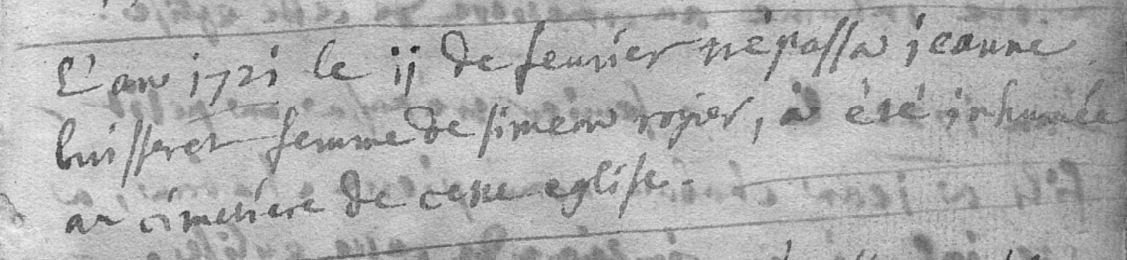 L'an 1721 le ij de feurier trépassa jeanne
buisseret femme de simeon rogier, a été inhumée
au cimetiere de cette eglise.